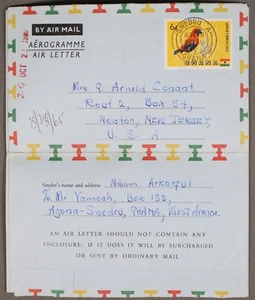 BY AIR MAIL
AÉROGRAMME
AIR LETTER
GHANA
8/28/65
Mrs G. Arnold Conant
Route 2, Box 54,
Newton, NEW JERSEY,
U. S. A
Sender's name and address
℅ Mr Yamoah, Box 153,
Agona-Swedru, GHANA, WEST AFRICA.
AN AIR LETTER SHOULD NOT CONTAIN ANY
ENCLOSURE; IF IT DOES IT WILL BE SURCHARGED
OR SENT BY ORDINARY MAIL